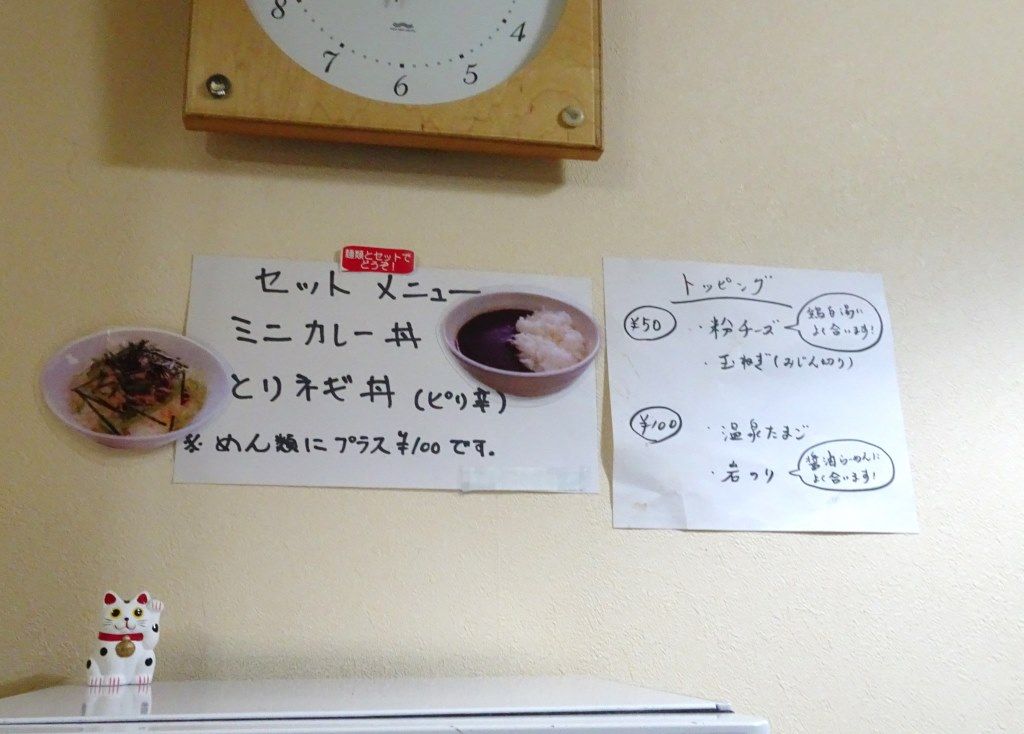 8
7
6
5
4
麺類とセットで
どうぞ!
セット メニュー
ミニカレー丼
とりネギ丼 (ピリ辛)
※ めん類にプラス¥100です。
トッピング
¥50
・粉チーズ
鶏白湯に
よく合います!
・玉ねぎ(みじん切り)
¥100
・温泉たまご
・岩のり
醤油らーめんに
よく合います!